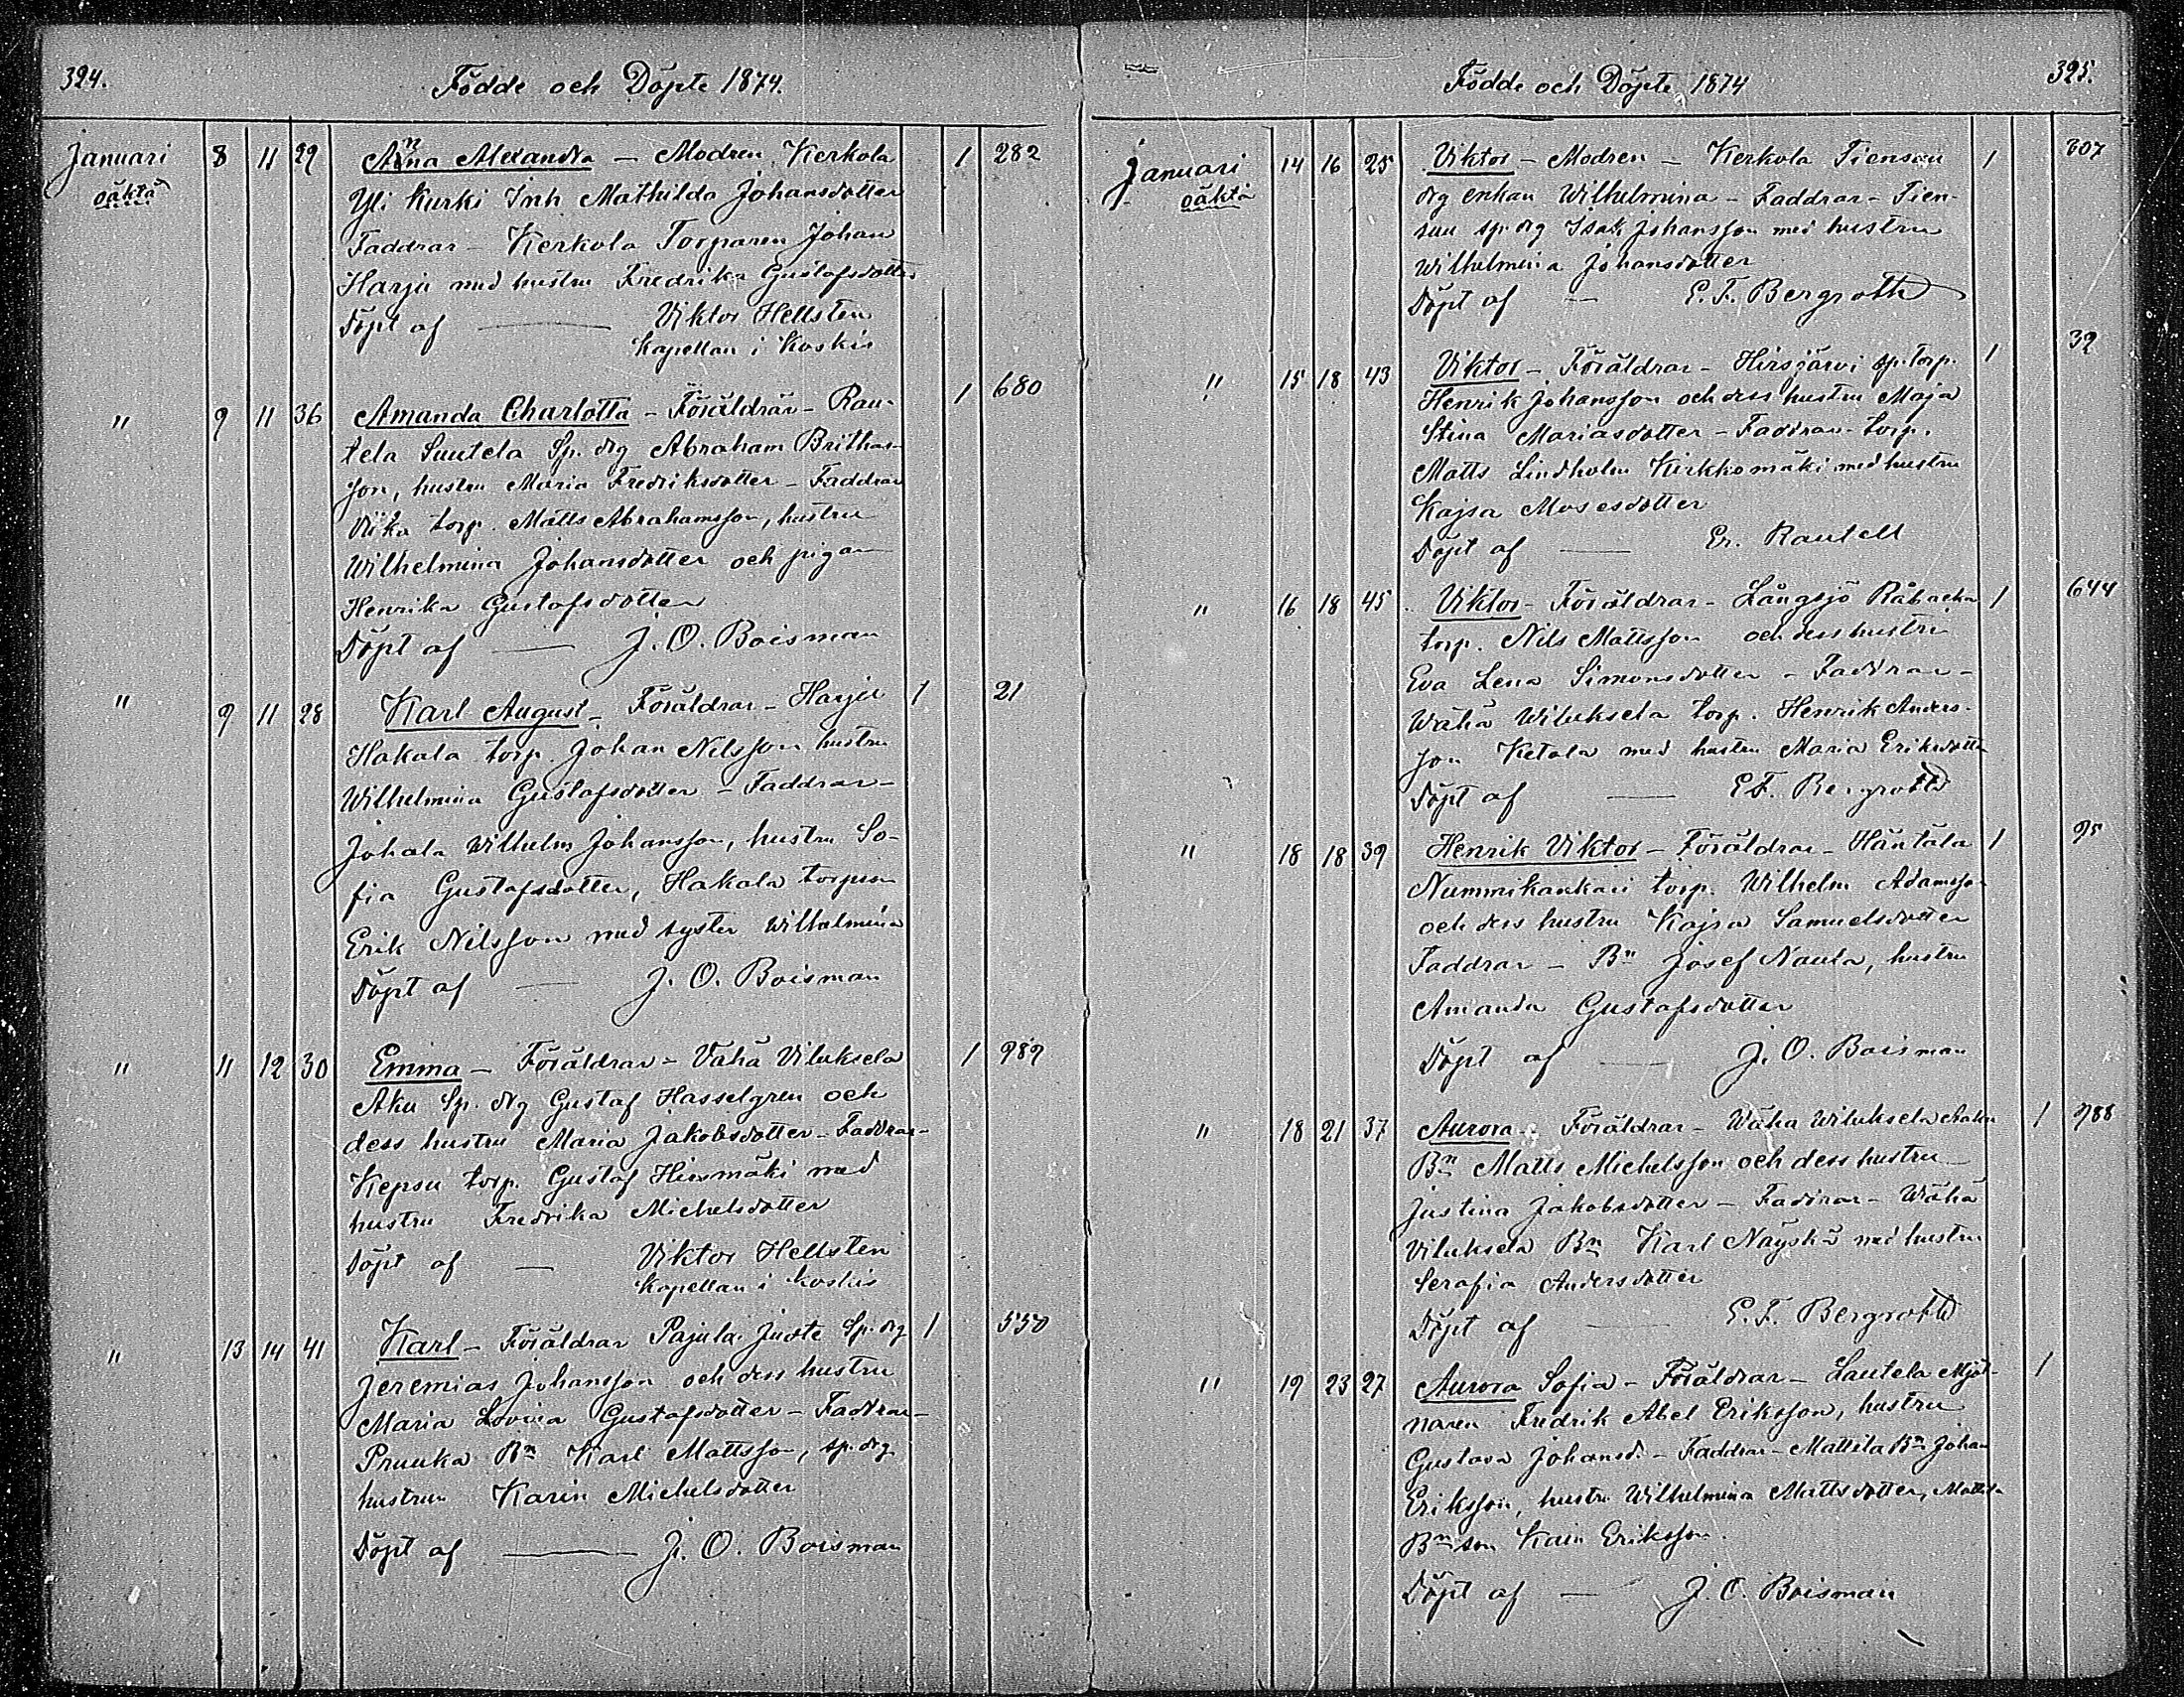 324.
Födde och Döpte 1874.
Januari 8 11 29 Anna Alexandra – Modren Kerkola 1 282
oäkta Yli Kurki Inh Mathilda Johansdotter
Faddrar – Kerkola Torparen Johan
Harju med hustru Fredrika Gustafsdotter
Döpt af — Viktor Hellsten
Kapellan i Koskis
" 9 11 36 Amanda Charlotta – Föräldrar – Rau- 1 680
tela Suutela Sp. drg Abraham Brithas-
son, hustru Maria Fredriksdotter – Faddrar
torp. Matts Abrahamsson, hustru
Wilhelmina Johansdotter och pigan
Henrika Gustafsdotter
Döpt af — J. O. Boisman
" 9 11 28 Karl August – Föräldrar – Harju 1 21
Hakala torp. Johan Nilsson hustru
Wilhelmina Gustafsdotter – Faddrar –
Johala Wilhelm Johansson, hustru So-
fia Gustafsdotter, Hakala torpson
Erik Nilsson med syster Wilhelmina
Döpt af — J. O. Boisman
" 11 12 30 Emma – Föräldrar – Vähä Viluksela 1 989
Aku Sp. drg Gustaf Hasselgren och
dess hustru Maria Jakobsdotter – Faddrar –
Kepsu torp. Gustaf Hirsmäki med
hustru Fredrika Michelsdotter
Döpt af — Viktor Hellsten
Kapellan i Koskis
" 13 14 41 Karl – Föräldrar Pajula Sp. drg 1 550
Jeremias Johansson och dess hustru
Maria Lovisa Gustafsdotter – Faddrar –
Pruuka Bn Karl Mattsson, sp. drg
hustrun Karin Michelsdotter
Döpt af — J. O. Boisman
325.
Födde och Döpte 1874
Januari 14 16 25 Viktor – Modren – Kerkola Tiensuu 1 807
oäkta drg enkan Wilhelmina – Faddrar – Tien-
suu sp. drg Isak Johansson med hustru
Wilhelmina Johansdotter
Döpt af — E. F. Bergroth
" 15 18 43 Viktor – Föräldrar – Hirsjärvi sp. torp. 1 32
Henrik Johansson och dess hustru Maja
Stina Mariasdotter – Faddrar – torp.
Matts Lindholm Kirkkomäki med hustru
Kajsa Mosesdotter
Döpt af — Er. Rautell
" 16 18 45 Viktor – Föräldrar – Långsjö Råbacka 1 644
torp. Nils Mattsson och dess hustru
Eva Lena Simonsdotter – Faddrar –
Wähä Wiluksela torp. Henrik Anders-
son Ketola med hustru Maria Eriksdotter
Döpt af — E. F. Bergroth
" 18 18 39 Henrik Viktor – Föräldrar – Häntälä 1 95
Nummikankari torp. Wilhelm Adamsson
och dess hustru Kajsa Samuelsdotter
Faddrar – Bn Josef Nauta, hustru
Amanda Gustafsdotter
Döpt af — J. O. Boisman
" 18 21 37 Aurora – Föräldrar – Wähä Wiluksela 1 988
Bn Matts Michelsson och dess hustru
Justina Jakobsdotter – Faddrar – Wähä
Viluksela Bn Karl Näyskä med hustru
Serafia Andersdotter
Döpt af — E. F. Bergroth
" 19 23 27 Aurora Sofia – Föräldrar – Lautela Mjöl- 1
naren Fredrik Abel Eriksson, hustru
Gustava Johansd. – Faddrar – Mattila Bn Johan
Eriksson, hustru Wilhelmina Mattsdotter, Mattila
Bn son Eriksson.
Döpt af — J. O. Boisman